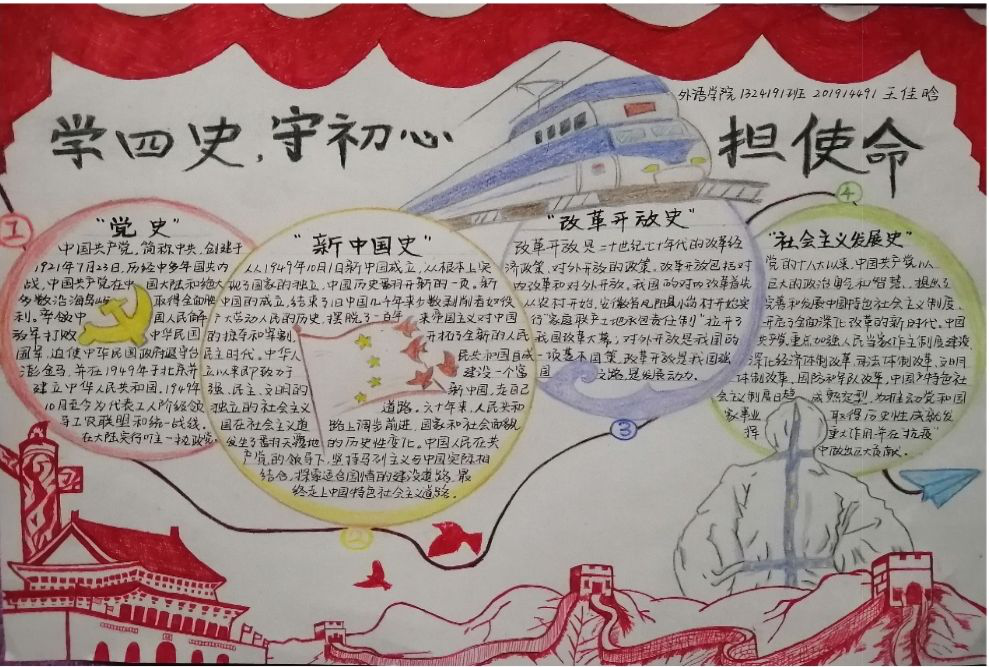 外语学院 1324191班 201914491 王佳晗
学四史,守初心 担使命
1
"党史"
中国共产党,简称中共,创建于
1921年7月23日,历经中多年国共内
战,中国共产党在中国大陆和绝大
多数沿海岛屿取得全面胜
利。
国人民解
放军打败中华民国
国军,迫使中华民国政府退守台
澎金马,并在1949年于北京并
建立中华人民共和国。1949年
10月至今为代表工人阶级领
导工农联盟和统一战线,
在大陆实行
2
"新中国史"
从1949年10月1日新中国成立,从根本上实
现了国家的独立,中国历史番羽开新的一页。新
中国的成立,结束了旧中国几千年来少数剥削者奴役
广大劳动人民的历史,摆脱了一百年来帝国主义对中国
的掠夺和宰割,开拓了全新的人民
民主时代。中华人民共和国自成
立以来即致力于建设一个富
强、民主、文明的新中国,走自己
独立的社会主义道路。六十年来,人民共和
国在社会主义道路上阔步前进,国家和社会面貌
发生了番羽天覆地的历史性变化。中国人民在共
产党的领导下,坚持马列主义与中国实际相
结合,探索适合国情的建设道路,最
终走上中国特色社会主义道路。
3
"改革开放史"
改革开放是二十世纪七十年代的改革经
济政策、对外开放的政策。改革开放包括对
内改革和对外开放。我国的对内改革首先
从农村开始,安徽省凤阳县小岗村开始实
行"家庭联产土地承包责任制",拉开了
我国改革大幕。对外开放是我国的
一项基本国策,改革开放是我国强
国之路,是发展动力。
4
"社会主义发展史"
党的十八大以来,中国共产党以
巨大的政治勇气和智慧,提出了
完善和发展中国特色社会主义制度,
开启了全面深化改革的新时代。中国
共产党重点加强人民当家作主制度建设
深化经济体制改革、司法体制改革、文明
体制改革、国防和军队改革,中国特色社
会主义制度日趋成熟定型,为推动党和国
家事业取得历史性成就发
挥重大作用,并在"抗疫"
中做出巨大贡献。